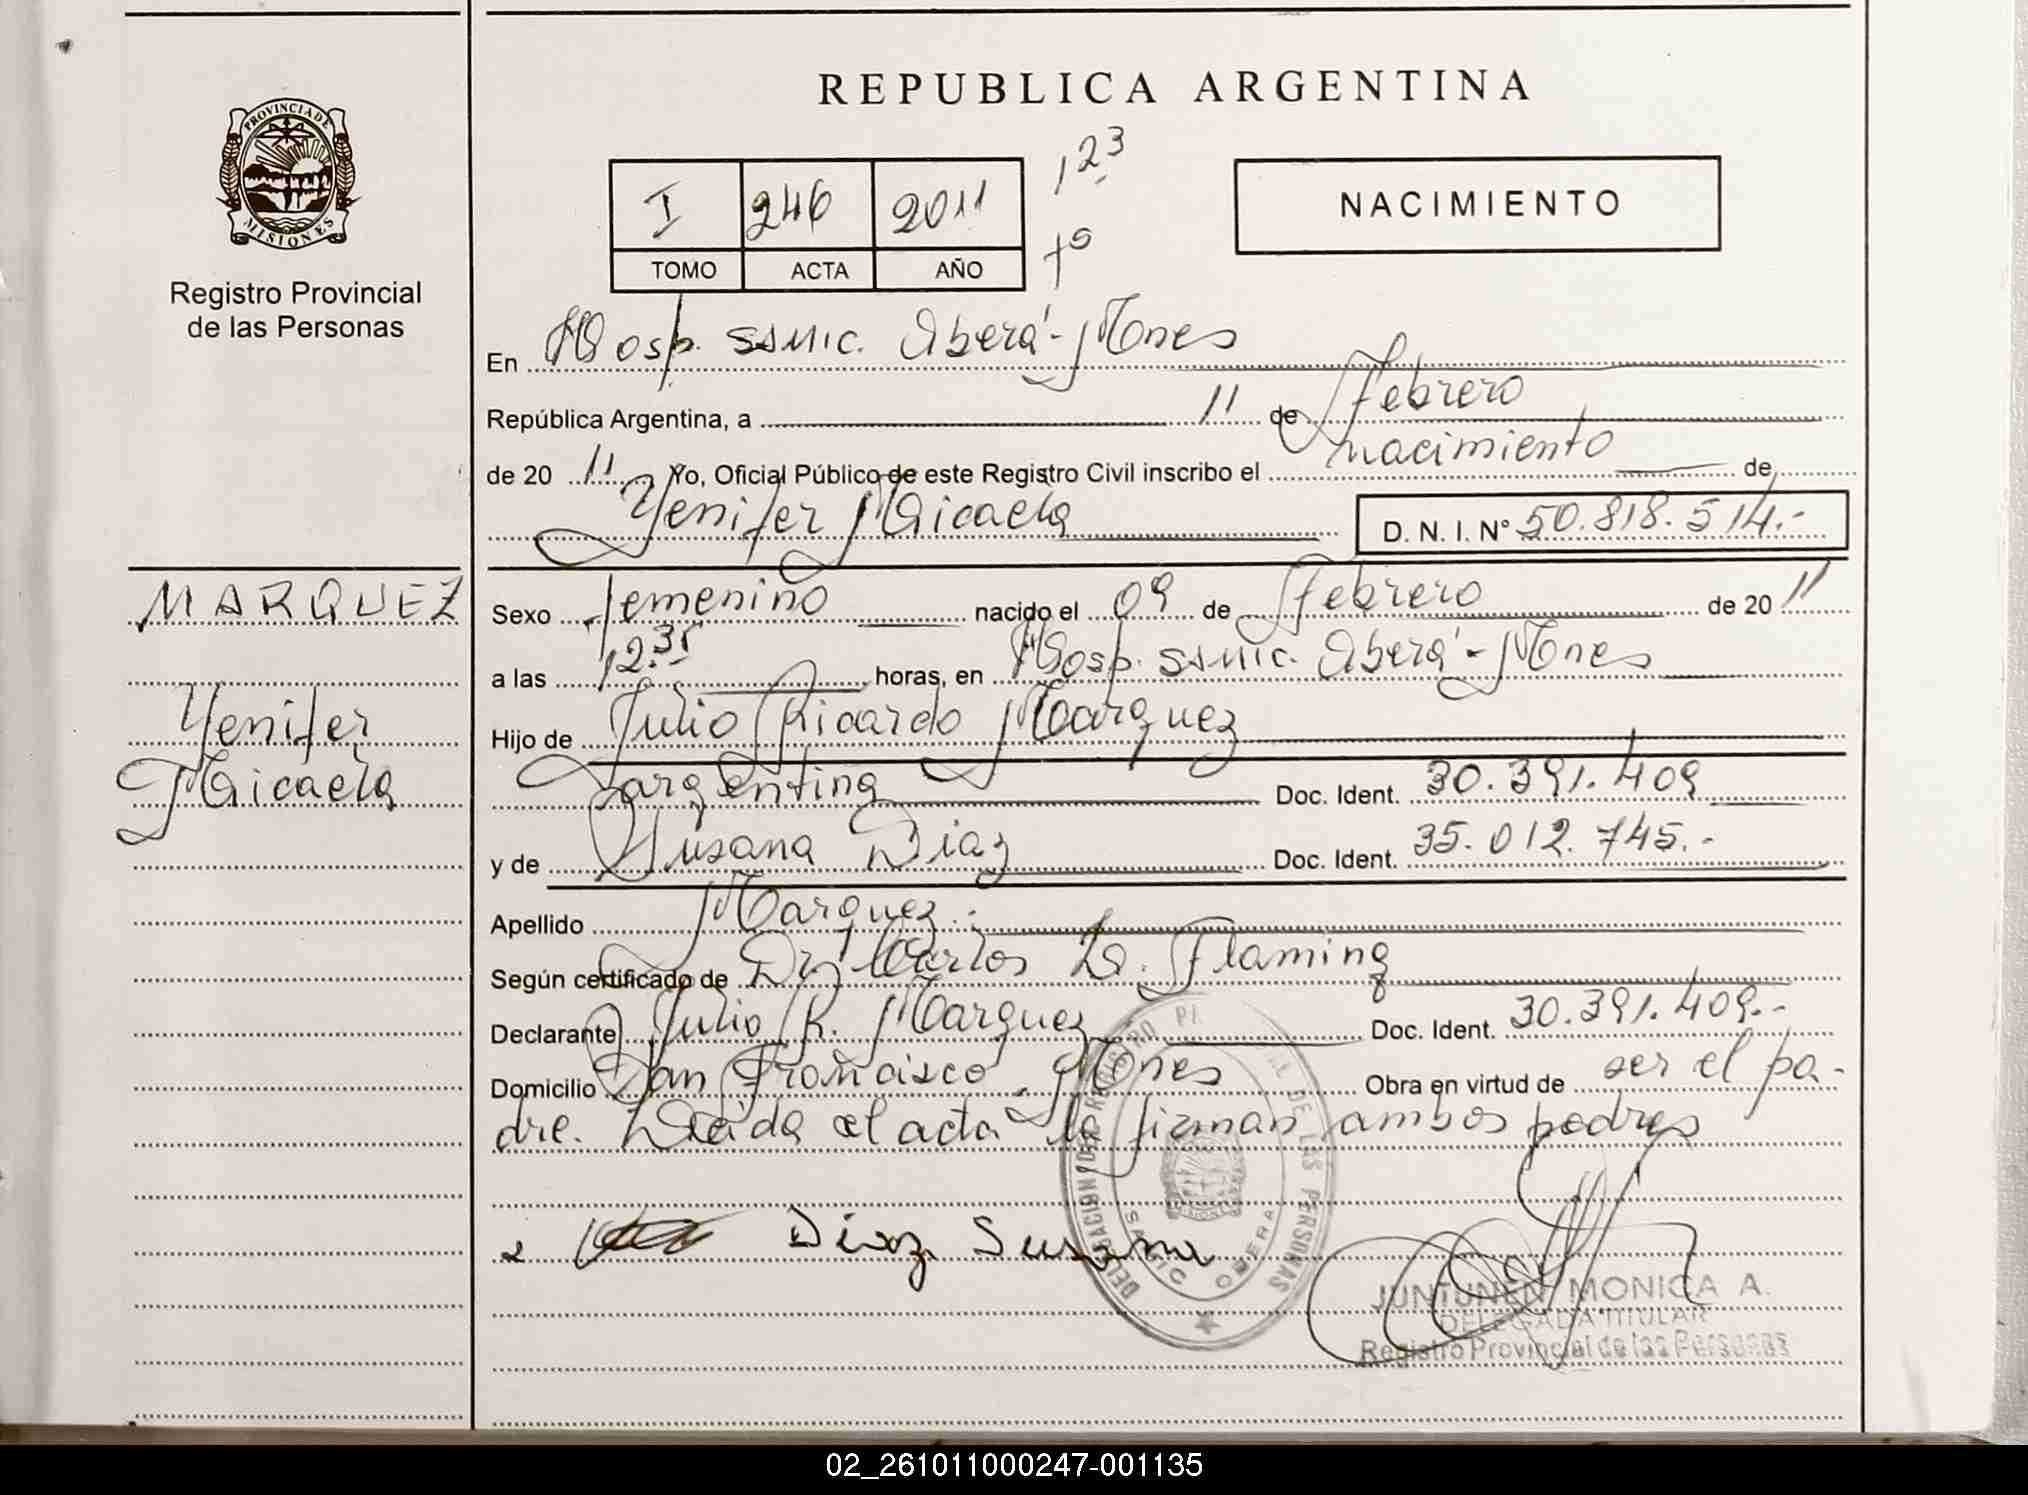 REPUBLICA ARGENTINA
PROVINCIA DE MISIONES
Registro Provincial
de las Personas
I 246 2011
TOMO ACTA AÑO
123
fº
NACIMIENTO
En Hosp. SSMIC. Oberá-Mnes
República Argentina, a 11 de Febrero
de 20 11 Yo, Oficial Público de este Registro Civil inscribo el nacimiento de
Yenifer Micaela D. N. I. Nº 50.818.514.-
MARQUEZ
Yenifer
Micaela
Sexo femenino nacido el 09 de Febrero de 20 11
a las 12.35 horas, en Hosp. SSMIC. Oberá-Mnes
Hijo de Julio Ricardo Marquez
argentina Doc. Ident. 30.391.409
y de Susana Diaz Doc. Ident. 35.012.745.-
Apellido Marquez.-
Según certificado de Dr. Carlos D. Flaming
Declarante Julio R. Marquez Doc. Ident. 30.391.409.-
Domicilio San Francisco, Mnes Obra en virtud de ser el pa-
dre. Leída el acta la firman ambos padres
Diaz Susana
DELEGACION DEL REGISTRO DE LAS PERSONAS
SAMIC OBERA
JUNTUNEN MONICA A.
DELEGADA TITULAR
Registro Provincial de las Personas
02_261011000247-001135